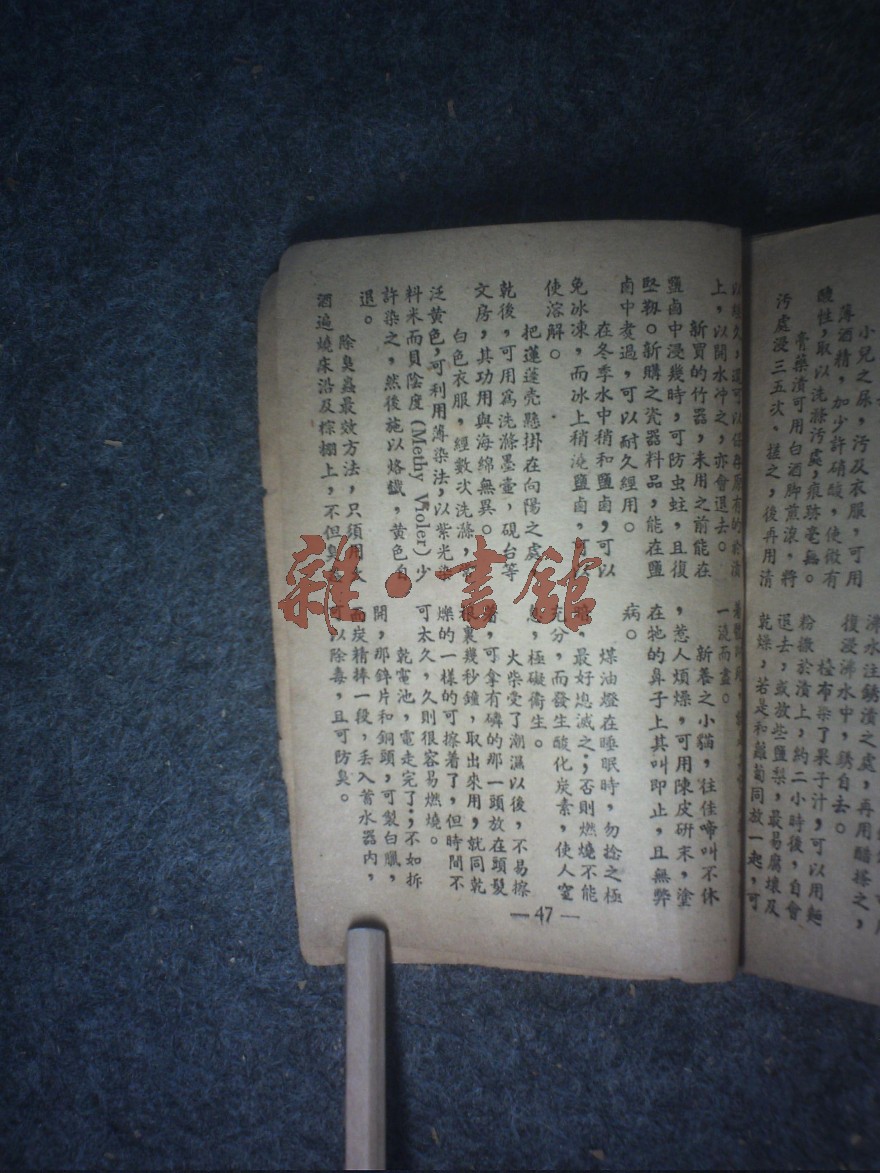 小兒之尿，污及衣服，可用
薄酒精，加少許硝酸，使微有
酸性，取以洗滌污處，痕跡毫無。
膏藥漬可用白酒脚煎滾，將
污處浸三五次，搓之，後再用清
沸水注銹漬之處，再用醋搽之，
復浸沸水中，銹自去。
檯布染了果子汁，可以用麵
粉撒於漬上，約二小時後，自會
退去，或放些鹽
梨，最易腐壞及
乾燥，若是和離蔔同放一起，可
以經久，還可以保存原有的
上，以開水冲之，亦會退去。
新買的竹器，未用之前能在
鹽鹵中浸幾時，可防虫蛀，且復
堅靱。新購之瓷器料品，能在鹽
鹵中煑過，可以耐久經用。
在冬季水中稍和鹽鹵，可以
免冰凍，而冰上稍澆鹽鹵，可
使溶解。
把蓮蓬壳懸掛在向陽之處，
乾後，可用爲洗滌墨壷，硯台等
文房，其功用與海綿無異。
白色衣服，經數次洗滌，
泛黄色，可利用薄染法，以紫光染
料米而貝陰度(Methy Violer)少
許染之，然後施以烙鐵，黄色自
退。
除臭蟲最效方法，只須用火
酒遍燒床沿及棕棚上，不但臭
一澆而盡。
新養之小貓，往佳啼叫不休
，惹人煩燥，可用陳皮研末，塗
在牠的鼻子上其叫即止，且無弊
病。
煤油燈在睡眠時，勿捻之極
暗，最好熄滅之；否則燃燒不能
充分，而發生酸化炭素，使人窒
息，極礙衛生。
火柴受了潮濕以後，不易擦
著，可拿有磷的那一頭放在頭髮
裏幾秒鐘，取出來用，就同乾
燥的一樣的可擦着了，但時間不
可太久，久則很容易燃燒。
乾電池，電走完了；不如拆
開，那鋅片和銅頭，可製白臘，
而炭精捧一段，丢入蓄水器内，
可以除毒，且可防臭。
—47—
雜·書館